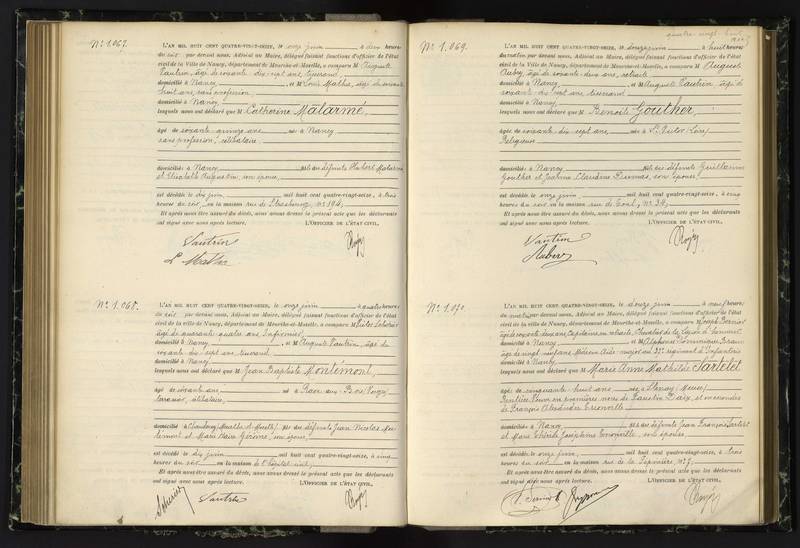 N° 1.067.
L'AN MIL HUIT CENT QUATRE-VINGT-SEIZE, le onze juin à deux heures
du soir par devant nous, Adjoint au Maire, délégué faisant fonctions d'officier de l'état
civil de la Ville de Nancy, département de Meurthe-et-Moselle, a comparu M Auguste
Vautrin, âgé de soixante dix-sept ans, tisserand
domicilié à Nancy et M Louis Mathis, âgé de soixante
huit ans, sans profession
domicilié à Nancy
lesquels nous ont déclaré que M Catherine Malarmé,
âgé de soixante-quinze ans née à Nancy
sans profession, célibataire
domicilié à Nancy fille des défunts Hubert Malarmé
et Elisabeth Augustin, son épouse,
est décédée le dix juin mil huit cent quatre-vingt-seize, à trois
heures du soir, en la maison rue de Strasbourg, n° 194,
Et après nous être assuré du décès, nous avons dressé le présent acte que les déclarants
ont signé avec nous après lecture. L'OFFICIER DE L'ÉTAT CIVIL,
Vautrin
L. Mathis
N° 1.068.
L'AN MIL HUIT CENT QUATRE-VINGT-SEIZE, le onze juin à quatre heures
du soir par devant nous, Adjoint au Maire, délégué faisant fonctions d'officier de l'état
civil de la ville de Nancy, département de Meurthe-et-Moselle, a comparu M
âgé de quarante quatre ans, infirmier
domicilié à Nancy et M Auguste Vautrin, âgé de
soixante dix-sept ans, tisserand
domicilié à Nancy
lesquels nous ont déclaré que M Jean Baptiste Montémont,
âgé de soixante ans né à Raon aux Bois (Vosges)
célibataire,
domicilié à (Meurthe et Moselle) fils des défunts Jean Nicolas
et Marie son épouse,
est décédé le dix juin mil huit cent quatre-vingt-seize, à cinq
heures du soir en la maison de l'hôpital civil,
Et après nous être assuré du décès, nous avons dressé le présent acte que les déclarants
ont signé avec nous après lecture. L'OFFICIER DE L'ÉTAT CIVIL,
Vautrin
quatre-vingt-huit
N° 1.069.
L'AN MIL HUIT CENT QUATRE-VINGT-SEIZE, le douze juin à huit heures
du matin par devant nous, Adjoint au Maire, délégué faisant fonctions d'officier de l'état
civil de la Ville de Nancy, département de Meurthe-et-Moselle, a comparu M August
Aubry, âgé de soixante-deux ans, retraité
domicilié à Nancy et M Auguste Vautrin âgé de
soixante-dix-sept ans, tisserand
domicilié à Nancy
lesquels nous ont déclaré que M Benoite Gouther,
âgée de soixante-dix-sept ans, née à St Victor (Loire)
Religieuse
domiciliée à Nancy fille des défunts Guillaume
Gouther et Jeanne Claudine son épouse,
est décédée le onze juin, mil huit cent quatre-vingt-seize, à cinq
heures du soir en la maison rue de Toul, n° 34,
Et après nous être assuré du décès, nous avons dressé le présent acte que les déclarants
ont signé avec nous après lecture. L'OFFICIER DE L'ÉTAT CIVIL,
Vautrin
N° 1.070.
L'AN MIL HUIT CENT QUATRE-VINGT-SEIZE, le douze juin à neuf heures
du matin par devant nous, Adjoint au Maire, délégué faisant fonctions d'officier de l'état
civil de la ville de Nancy, département de Meurthe-et-Moselle, a comparu M Joseph
âgé de soixante deux ans, Capitaine en retraite, Chevalier de la Légion d'honneur
domicilié à Nancy et M Alphonse Dominique
âgé de vingt sept ans Médecin Aide major au régiment d'Infanterie
domicilié à Nancy
lesquels nous ont déclaré que M Marie Anne Mathilde Tartelet
âgée de cinquante huit ans née à Stenay (Meuse)
Rentière, Veuve en premières noces de Faustin et en secondes
de François Alexandre
domiciliée à Nancy fille des défunts Jean François Tartelet
et Marie Thérèse Joséphine son épouse
est décédée le onze juin, mil huit cent quatre-vingt-seize, à trois
heures du soir en la maison rue de la Pépinière, n° 7,
Et après nous être assuré du décès, nous avons dressé le présent acte que les déclarants
ont signé avec nous après lecture. L'OFFICIER DE L'ÉTAT CIVIL,